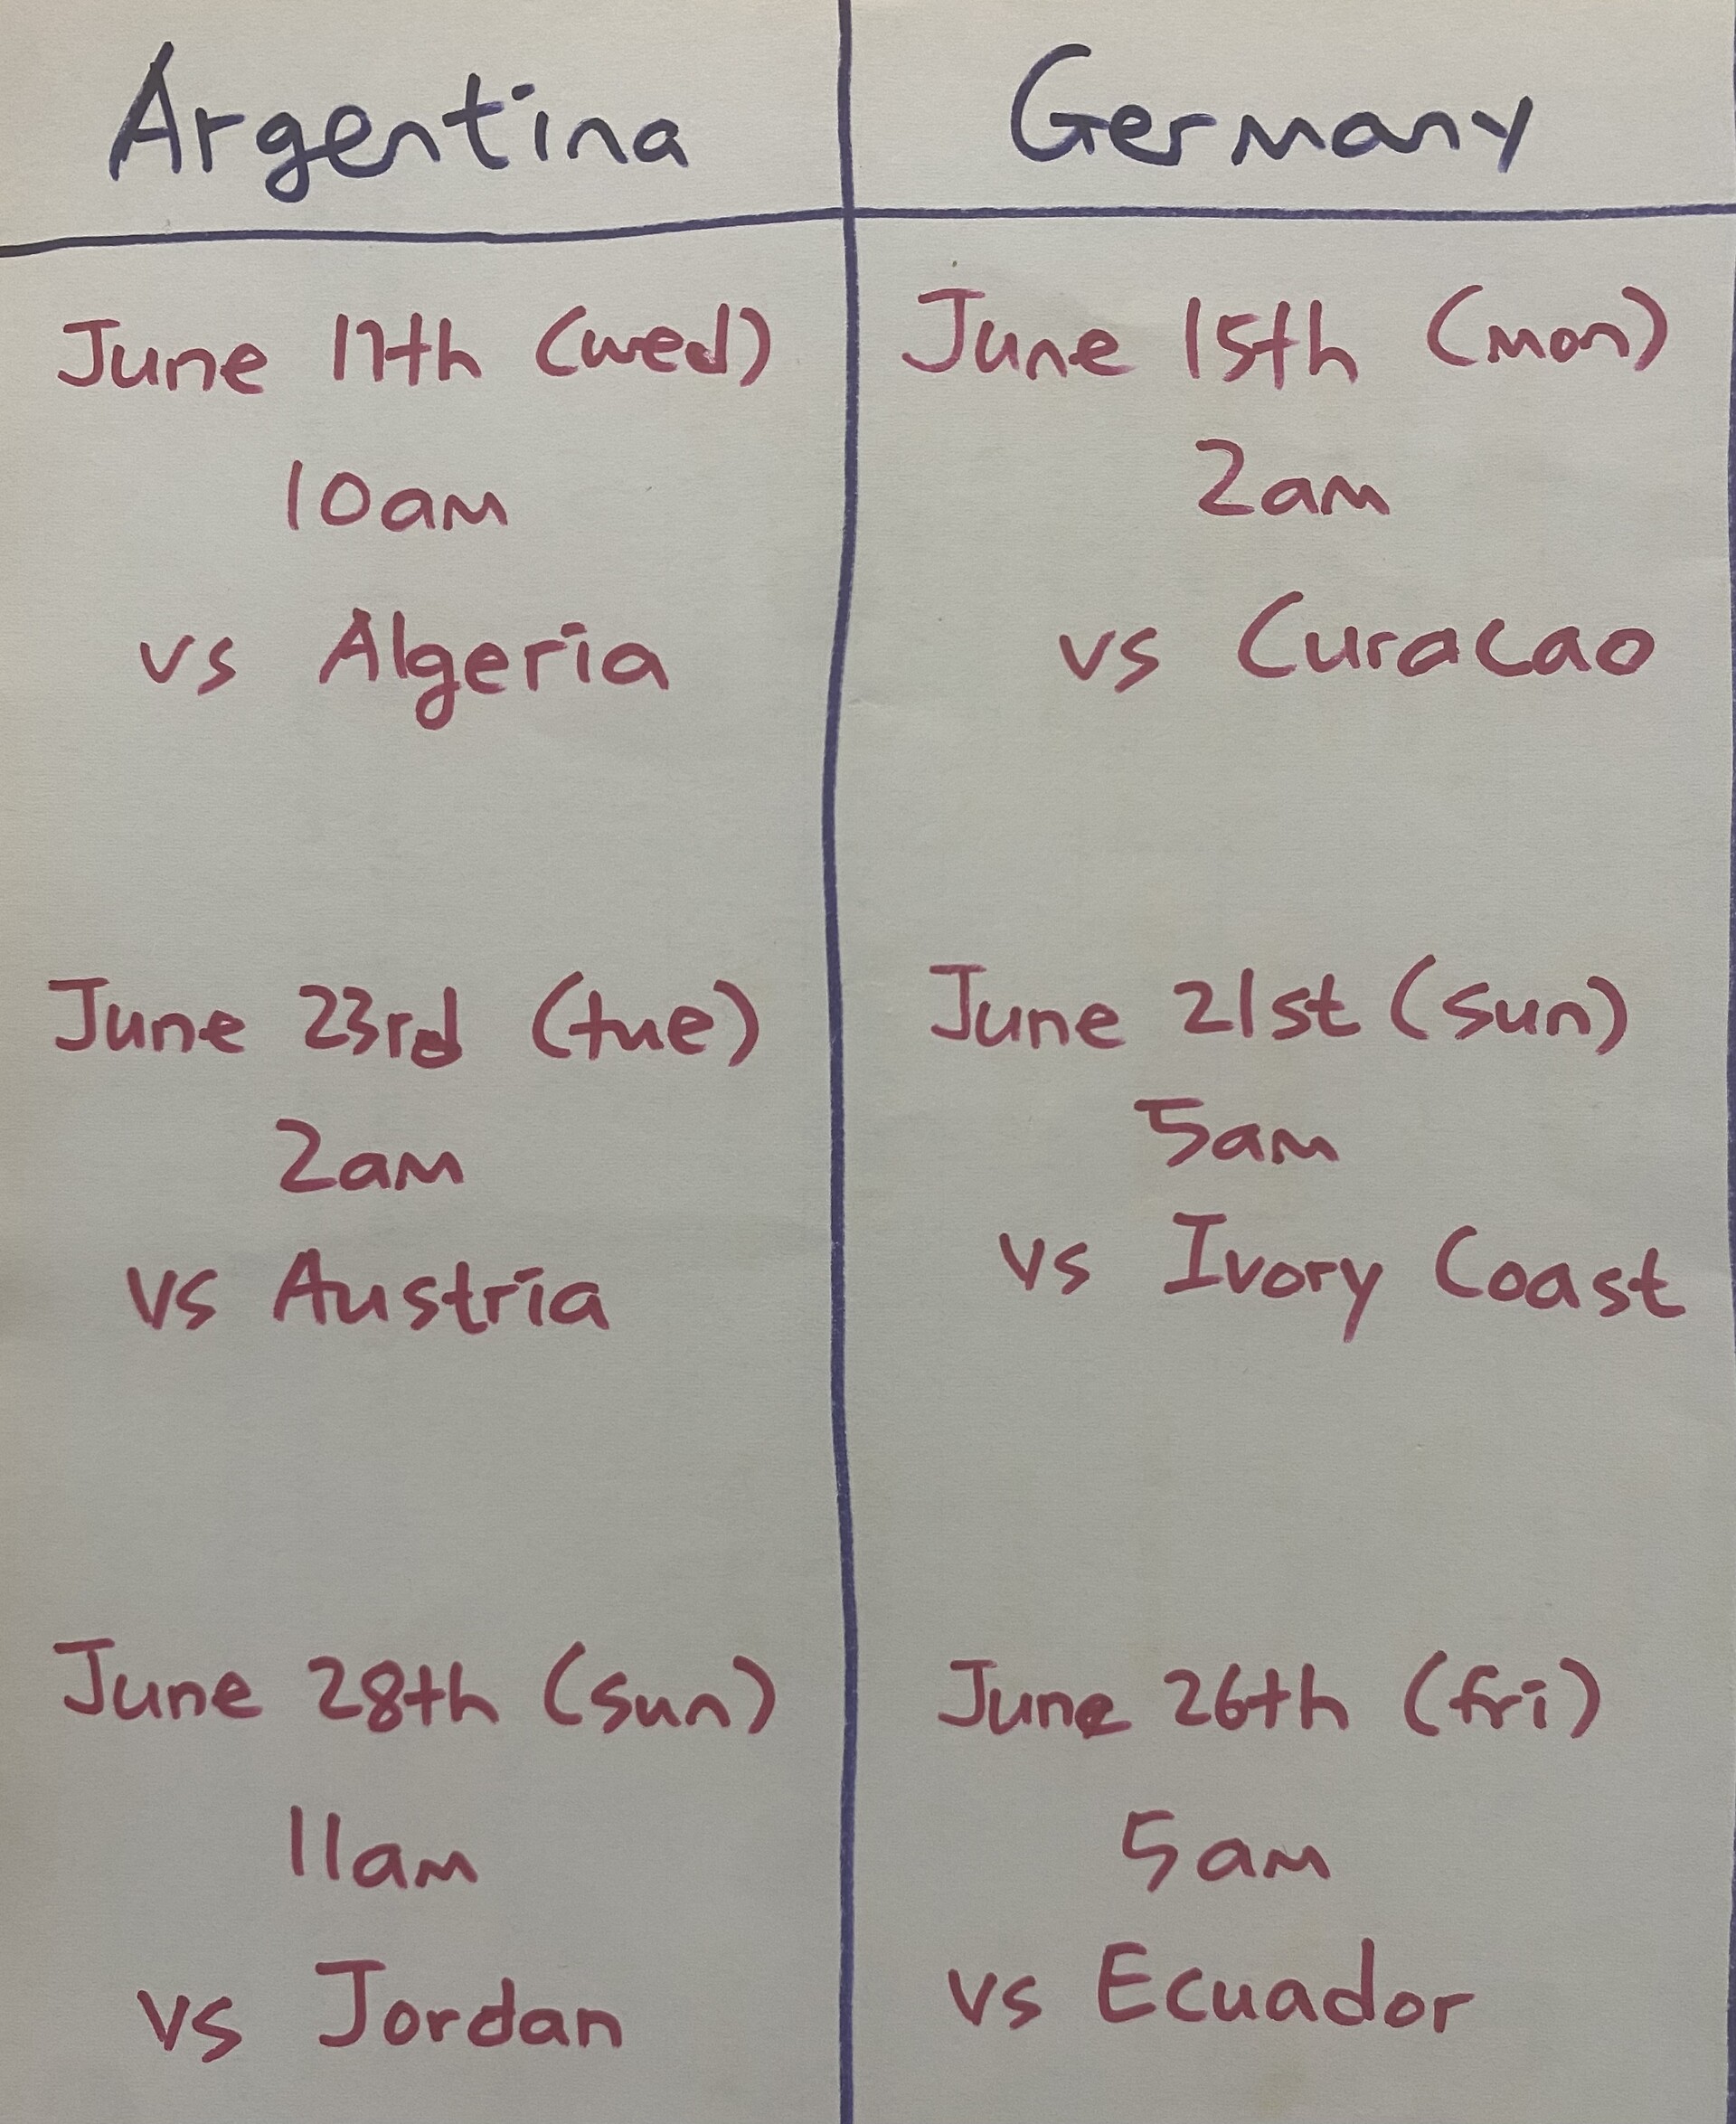 Argentina
June 17th (wed)
10am
vs Algeria
June 23rd (tue)
2am
vs Austria
June 28th (sun)
11am
vs Jordan
Germany
June 15th (mon)
2am
vs Curacao
June 21st (sun)
5am
vs Ivory Coast
June 26th (fri)
5am
vs Ecuador